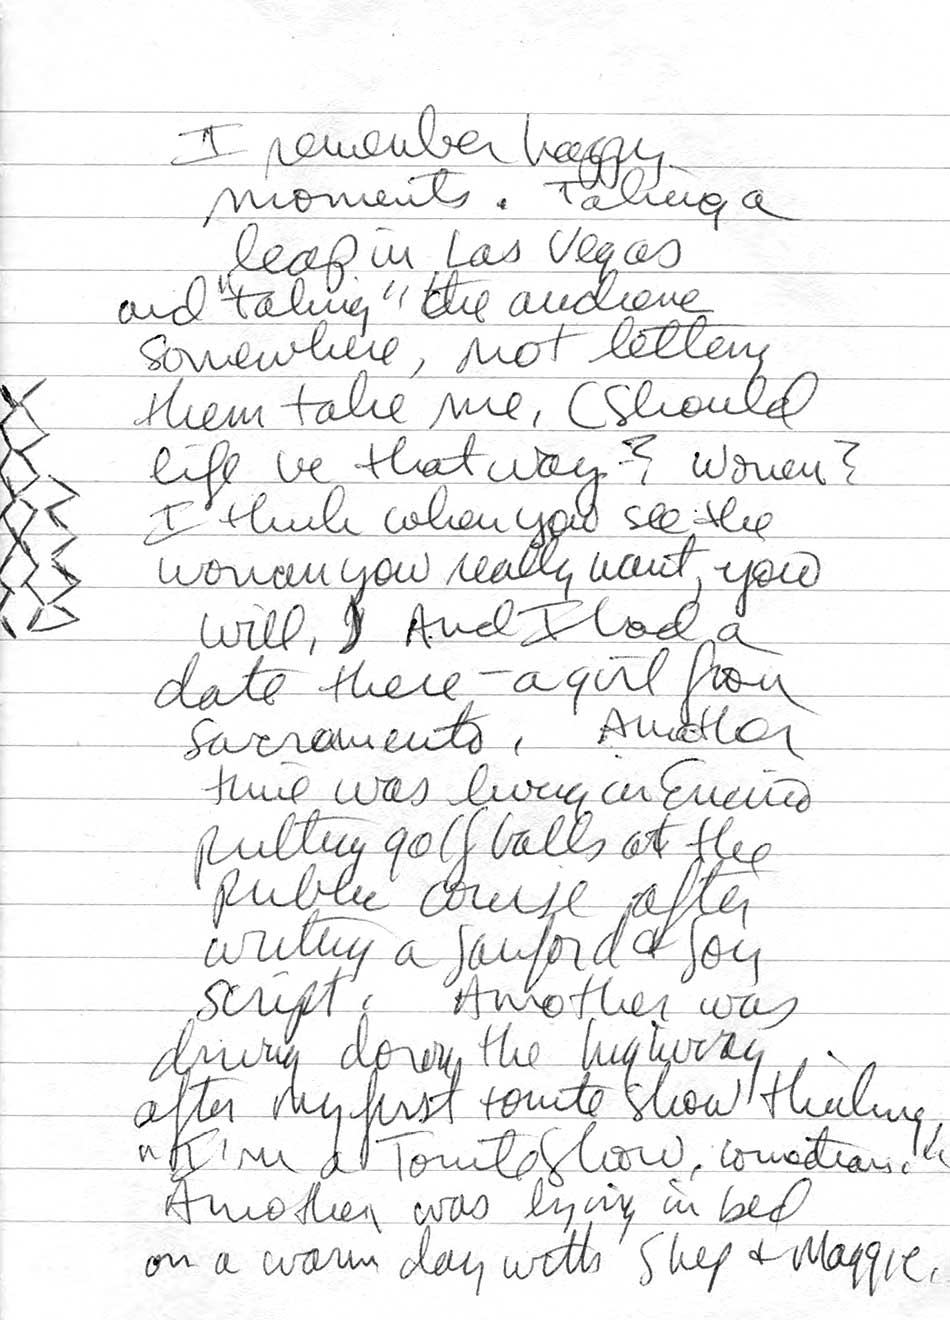 I remember happy
moments. Taking a
leap in Las Vegas
and "taking" the audience
somewhere, not letting
them take me. (Should
life be that way? Women?
I think when you see the
woman you really want, you
will.) And I had a
date there – a girl from
Sacramento. Another
time was living in Encino
putting golf balls at the
public course after
writing a Sanford & Son
script. Another was
driving down the highway
after my first tonite show thinking
"I'm a Tonite Show comedian."
Another was lying in bed
on a warm day with Shep & Maggie.